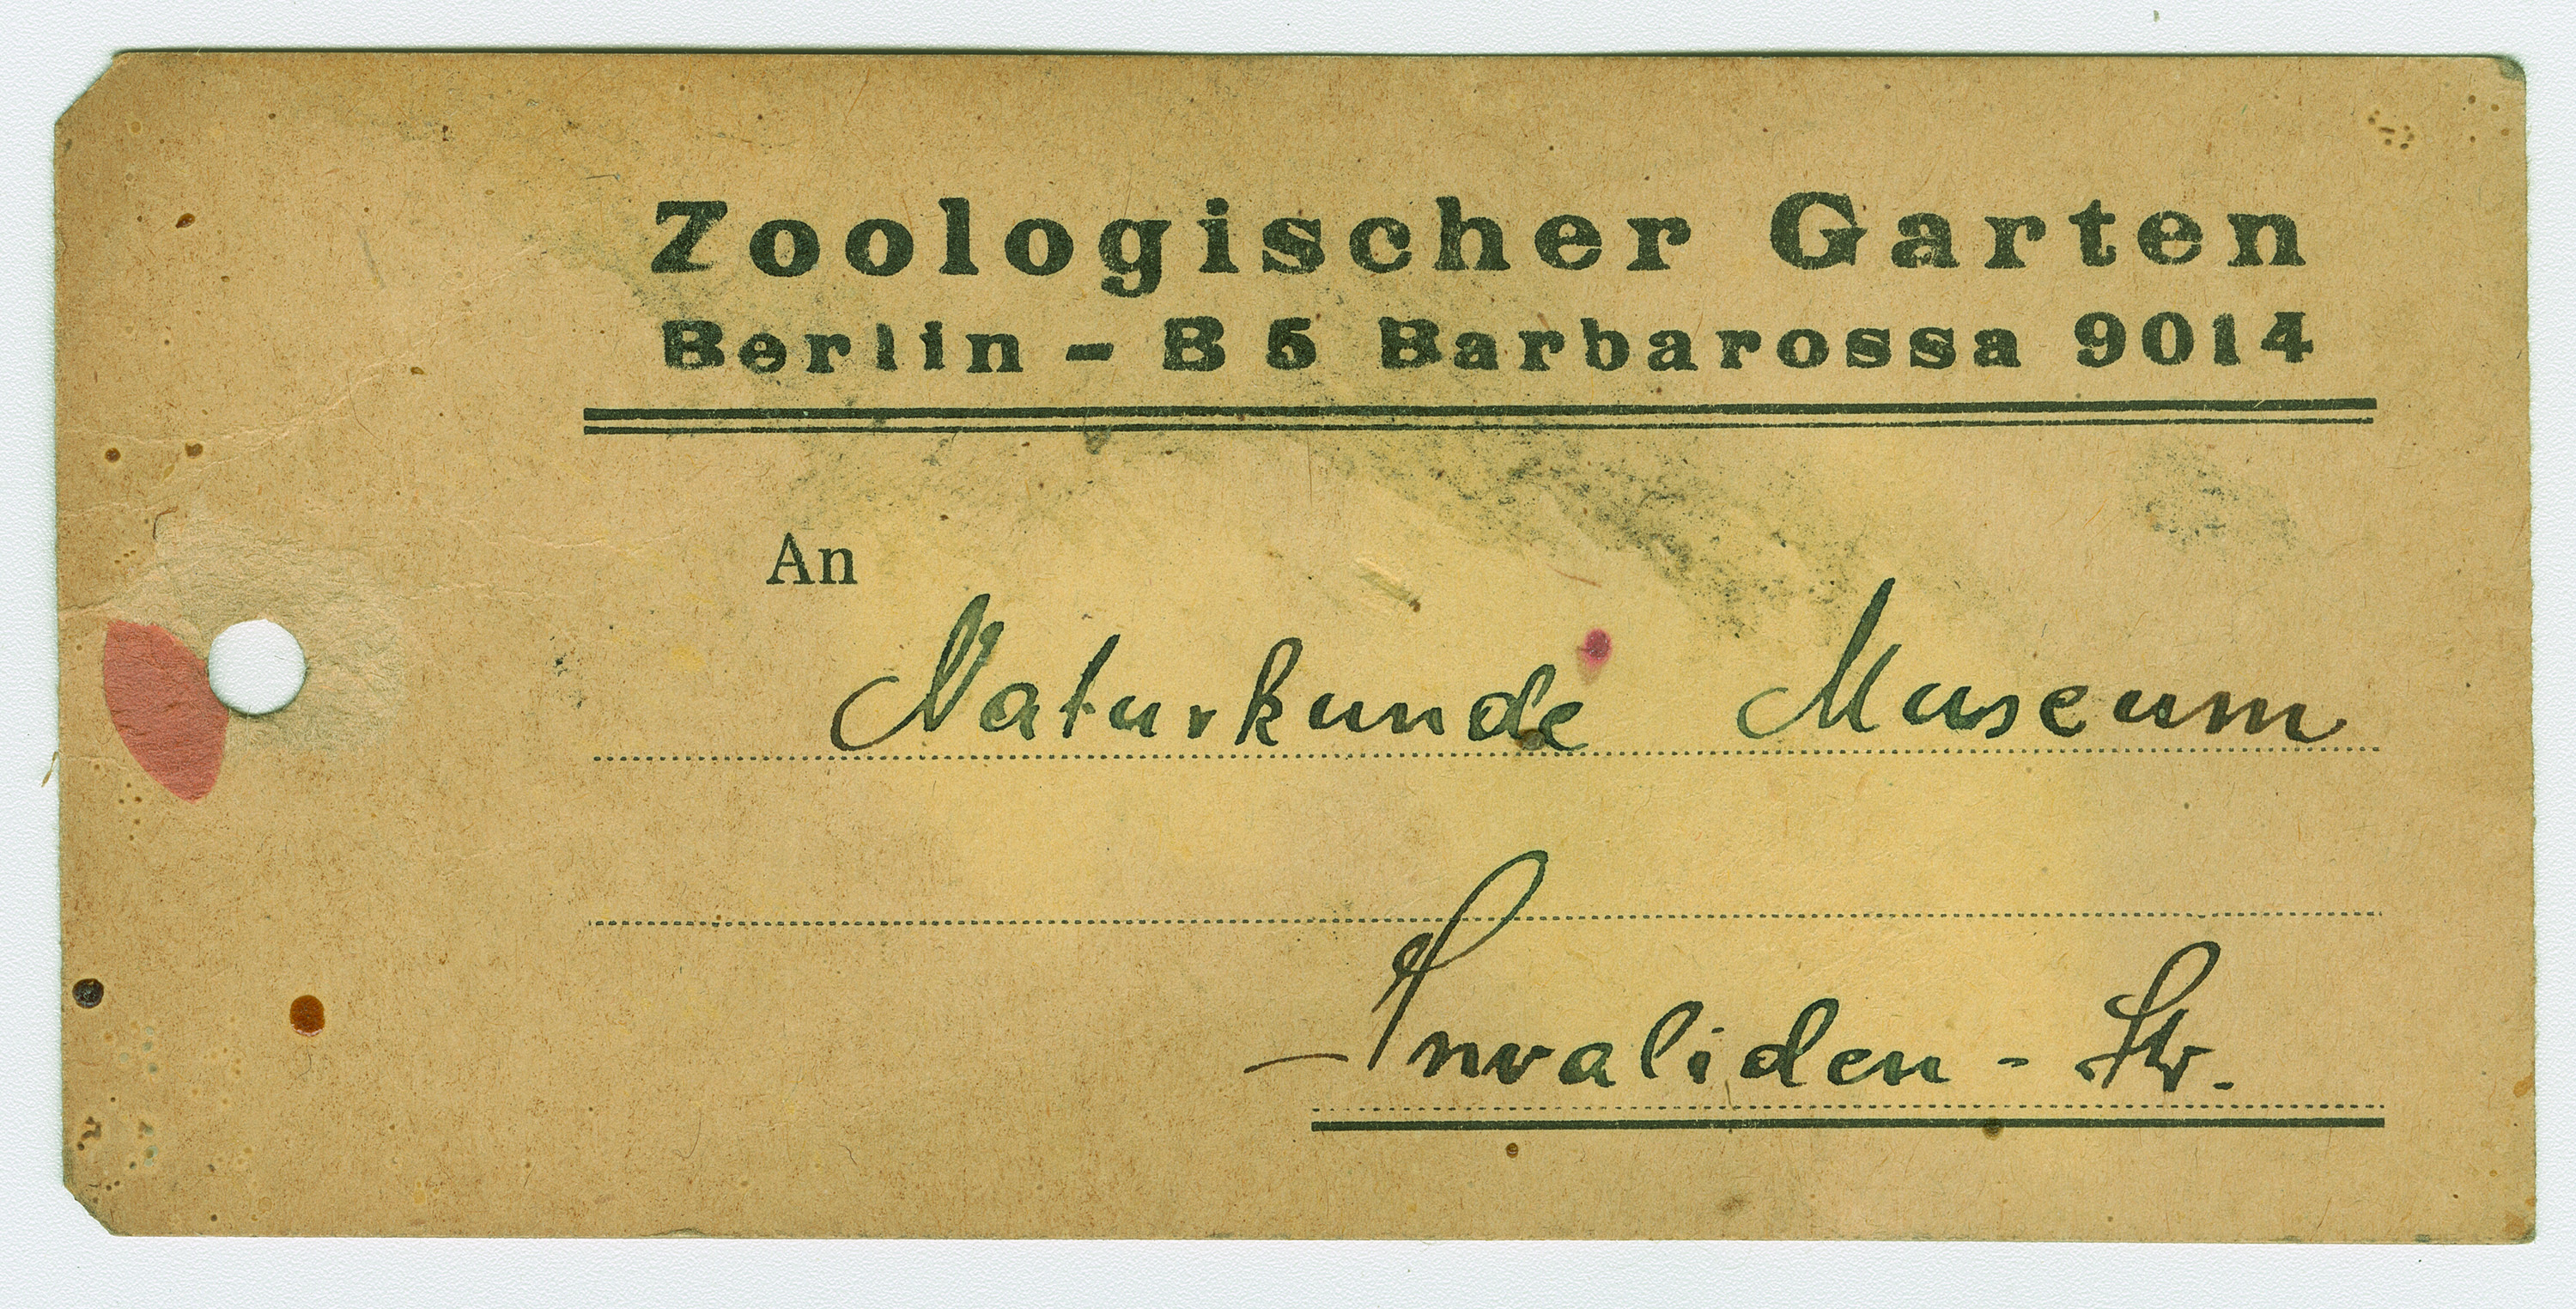 Zoologischer Garten
Berlin - B 5 Barbarossa 9014
An
Naturkunde Museum
Invaliden - Str.